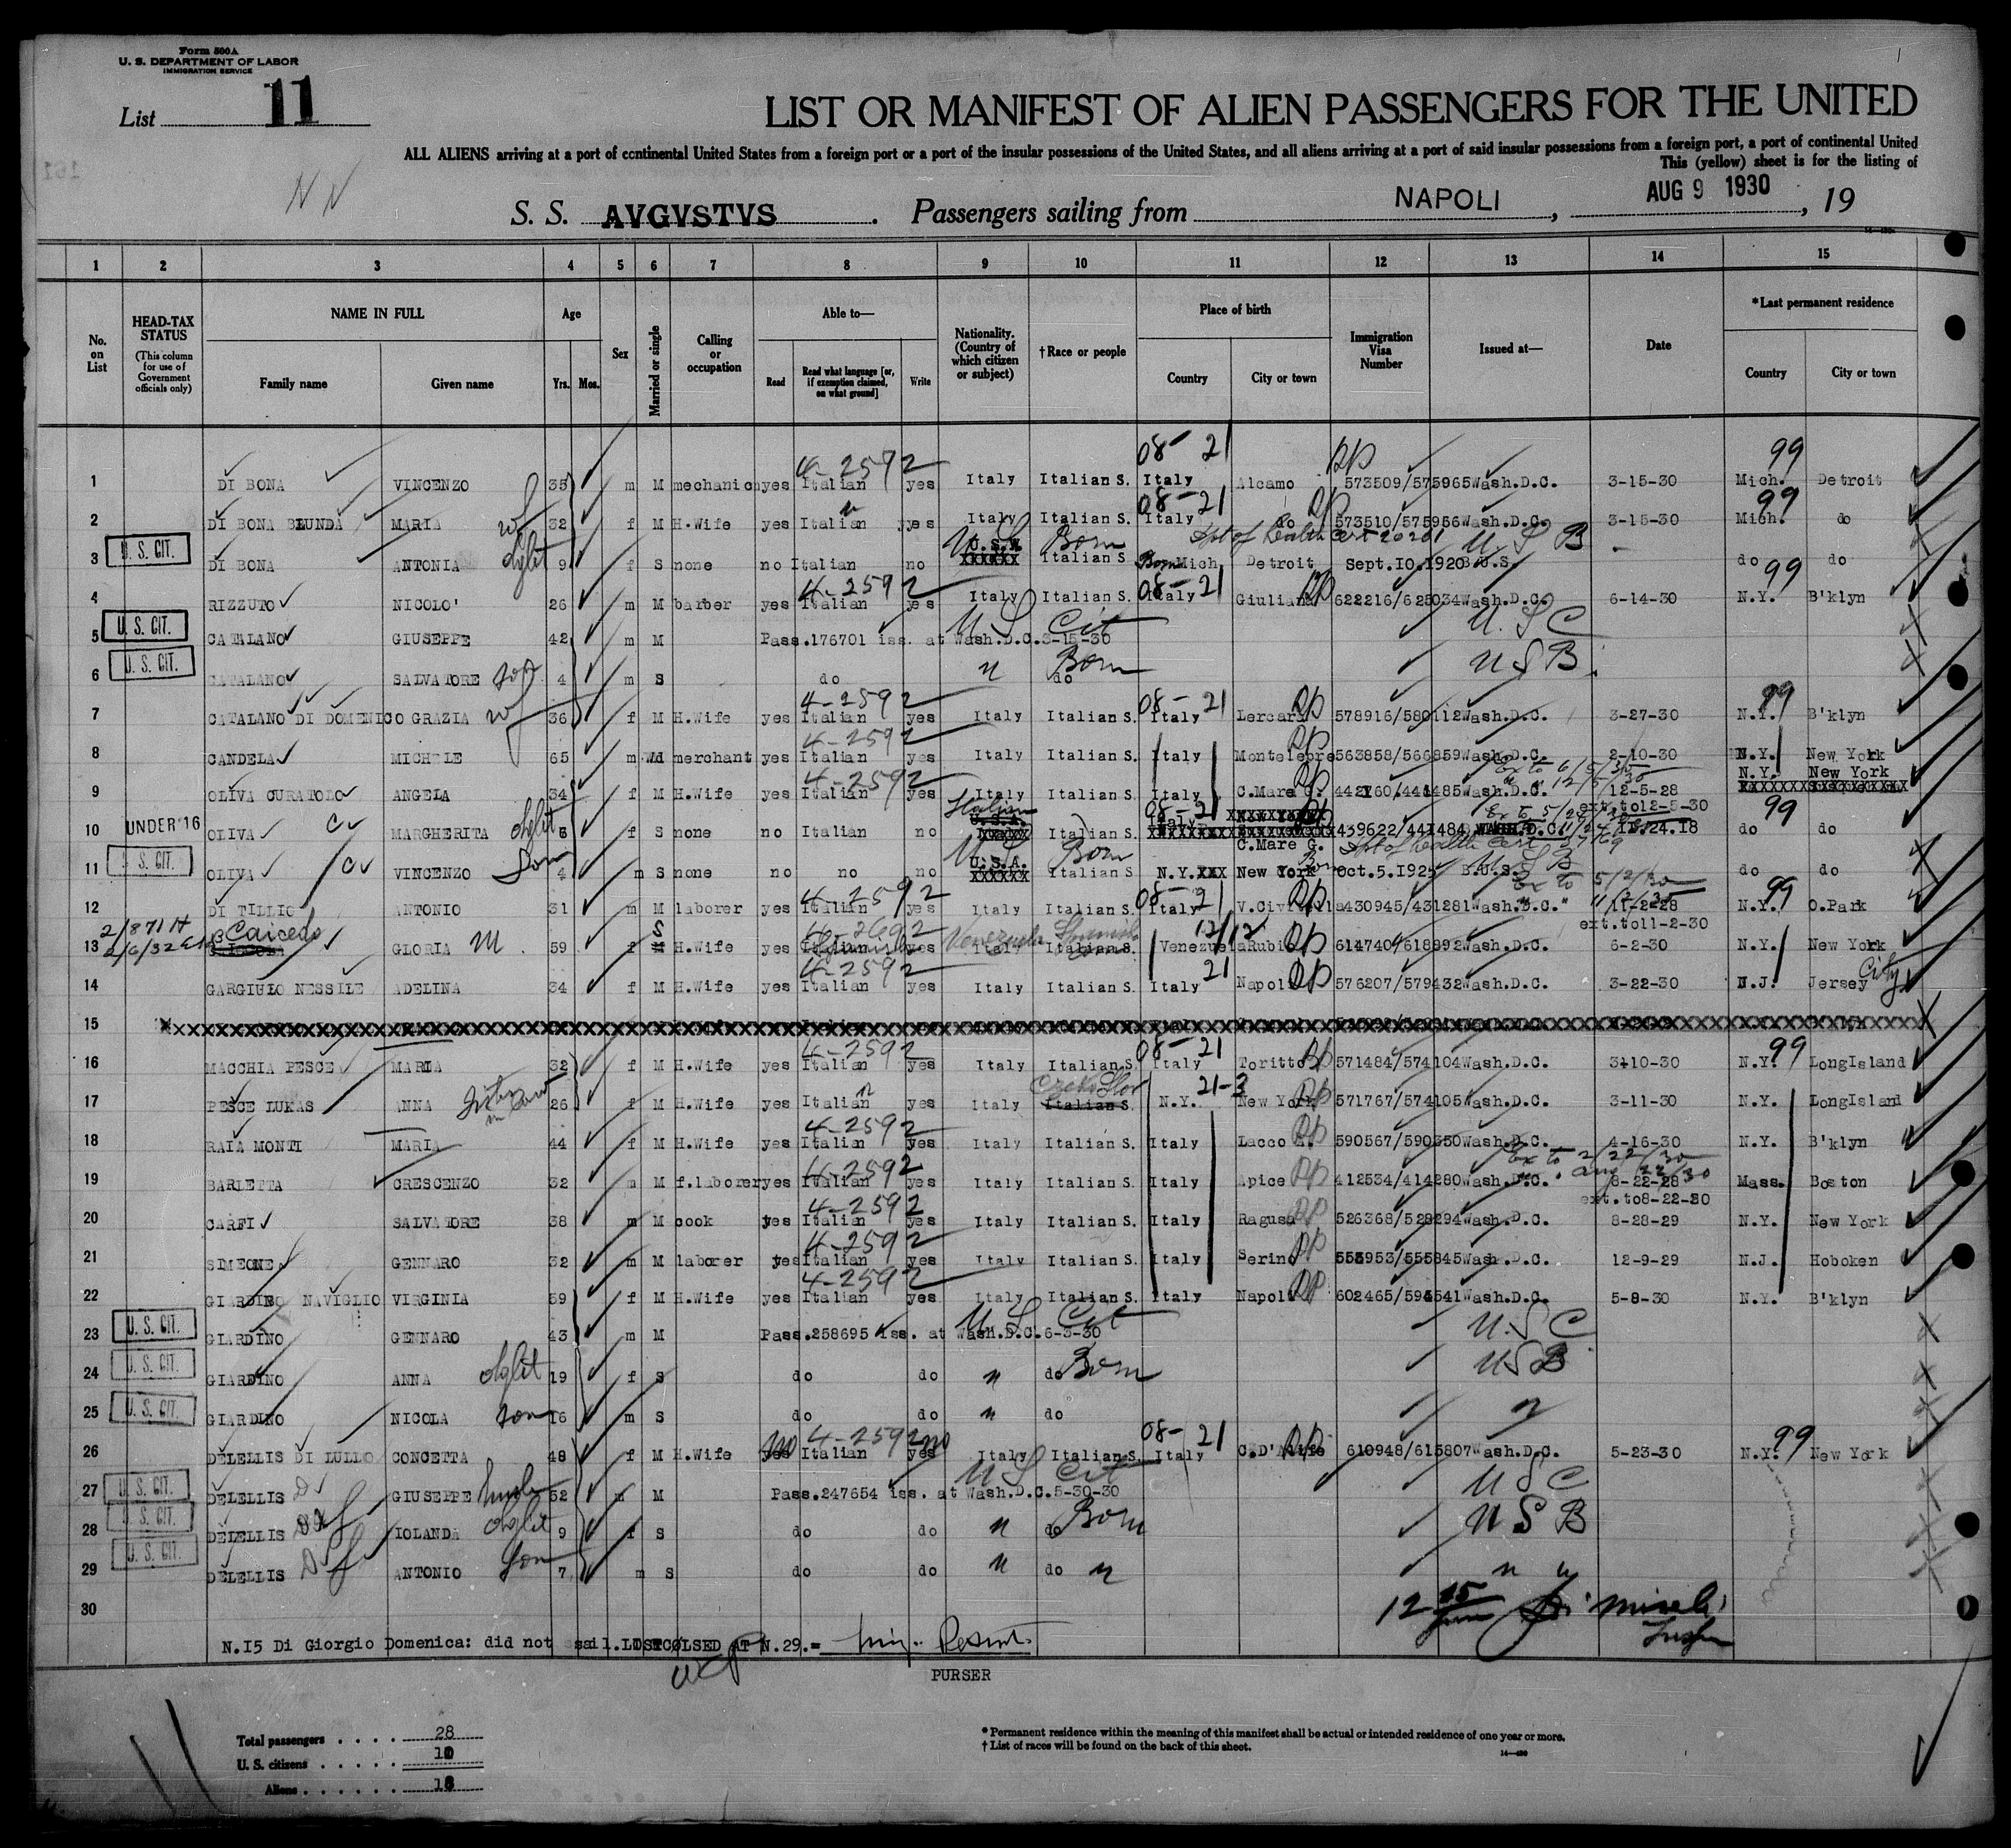 Form 500A
U. S. DEPARTMENT OF LABOR
IMMIGRATION SERVICE
List 11
LIST OR MANIFEST OF ALIEN PASSENGERS FOR THE UNITED
ALL ALIENS arriving at a port of continental United States from a foreign port or a port of the insular possessions of the United States, and all aliens arriving at a port of said insular possessions from a foreign port, a port of continental United
This (yellow) sheet is for the listing of
S. S. AVGVSTVS . Passengers sailing from NAPOLI , AUG 9 1930 , 19
1 2 3 4 5 6 7 8 9 10 11 12 13 14 15
No. on List
HEAD-TAX STATUS (This column for use of Government officials only)
NAME IN FULL
Family name Given name
Age
Yrs. Mos.
Sex
Married or single
Calling or occupation
Able to—
Read Read what language [or, if exemption claimed, on what ground] Write
Nationality. (Country of which citizen or subject)
†Race or people
Place of birth
Country City or town
Immigration Visa Number
Issued at—
Date
*Last permanent residence
Country City or town
1 DI BONA VINCENZO 35 m M mechanic yes Italian yes Italy Italian S. Italy Alcamo 573509/575965 Wash.D.C. 3-15-30 Mich. Detroit
4-2592 08-21 99
2 DI BONA BLUNDA MARIA wf 32 f M H.Wife yes Italian yes Italy Italian S. Italy do 573510/575956 Wash.D.C. 3-15-30 Mich. do
08-21 99
3 U. S. CIT. DI BONA ANTONIA 9 f S none no Italian no U.S.A. Italian S Born Mich. Detroit Sept.10.1920 B.U.S. do do
Born U S B
4 RIZZUTO NICOLO' 26 m M barber yes Italian yes Italy Italian S. Italy Giuliana 622216/625034 Wash.D.C. 6-14-30 N.Y. B'klyn
4-2592 08-21 99
5 U. S. CIT. CATALANO GIUSEPPE 42 m M Pass.176701 iss. at Wash.D.C.3-15-30
U S Cit U. S C
6 U. S. CIT. CATALANO SALVATORE son 4 m S do do
Born U S B
7 CATALANO DI DOMENICO GRAZIA wf 36 f M H.Wife yes Italian yes Italy Italian S. Italy Lercara 578916/580112 Wash.D.C. 3-27-30 N.Y. B'klyn
4-2592 08-21 99
8 CANDELA MICHELE 65 m Wd merchant yes Italian yes Italy Italian S. Italy Montelepre 563858/566859 Wash.D.C. 2-10-30 N.Y. New York
4-2592
9 OLIVA CURATOLO ANGELA 34 f M H.Wife yes Italian yes Italy Italian S. Italy C.Mare G. Wash.D.C. 12-5-28 N.Y. New York
4-2592 ext.to12-5-30
10 UNDER 16 OLIVA MARGHERITA f S none no Italian no Italian S. Italy C.Mare G. 439622/441484 do do
08-21 99
11 U. S. CIT. OLIVA VINCENZO Son 4 m S none no no no U.S.A. Italian S N.Y. New York B.U.S. do do
Born U S B
12 DI TILLIO ANTONIO 31 m M laborer yes Italian yes Italy Italian S. Italy 430945/431281 Wash.D.C. 11-2-28 N.Y. O.Park
4-2592 08-21 ext.to11-2-30 99
13 Caicedo GLORIA M 59 f H.Wife yes yes Venezuela Spanish Venezuela Rubio 614740/618892 Wash.D.C. 6-2-30 N.Y. New York
14 GARGIULO NESSILE ADELINA 34 f M H.Wife yes Italian yes Italy Italian S. Italy Napoli 576207/579432 Wash.D.C. 3-22-30 N.J. Jersey City
4-2592 21
15
16 MACCHIA PESCE MARIA 32 f M H.Wife yes Italian yes Italy Italian S. Italy Toritto 571484/574104 Wash.D.C. 3-10-30 N.Y. LongIsland
4-2592 08-21 99
17 PESCE LUKAS ANNA Sister in law 26 f M H.Wife yes Italian yes Italy Italian S. N.Y. New York 571767/574105 Wash.D.C. 3-11-30 N.Y. LongIsland
18 RAIA MONTI MARIA 44 f M H.Wife yes Italian yes Italy Italian S. Italy Lacco A. 590567/590350 Wash.D.C. 4-16-30 N.Y. B'klyn
4-2592
19 BARLETTA CRESCENZO 32 m M f.laborer yes Italian yes Italy Italian S. Italy Apice 412534/414280 Wash.D.C. 8-22-28 Mass. Boston
4-2592 ext.to8-22-30
20 CARFI SALVATORE 38 m M cook yes Italian yes Italy Italian S. Italy Ragusa 526368/528294 Wash.D.C. 8-28-29 N.Y. New York
4-2592
21 SIMEONE GENNARO 32 m M laborer yes Italian yes Italy Italian S. Italy Serino 553953/555845 Wash.D.C. 12-9-29 N.J. Hoboken
4-2592
22 GIARDINO NAVIGLIO VIRGINIA 59 f M H.Wife yes Italian yes Italy Italian S. Italy Napoli Wash.D.C. 5-8-30 N.Y. B'klyn
4-2592
23 U. S. CIT. GIARDINO GENNARO 43 m M Pass.258695 iss. at Wash.D.C.6-3-30
U S Cit U. S C
24 U. S. CIT. GIARDINO ANNA 19 f S do do do
Born U S B
25 U. S. CIT. GIARDINO NICOLA son 16 m S do do do
26 DELELLIS DI LULLO CONCETTA 48 f M H.Wife no Italian no Italy Italian S. Italy 610948/615807 Wash.D.C. 5-23-30 N.Y. New York
4-2592 08-21 99
27 U. S. CIT. DELELLIS GIUSEPPE 52 m M Pass.247654 iss. at Wash.D.C.5-30-30
U S Cit U S C
28 U. S. CIT. DELELLIS IOLANDA 9 f S do do do
Born U S B
29 U. S. CIT. DELELLIS ANTONIO Son 7 m S do do do
30
N.15 Di Giorgio Domenica: did not sail. N.29.=
PURSER
Total passengers . . . . 28
U. S. citizens . . . . . 10
Aliens . . . . . . 18
* Permanent residence within the meaning of this manifest shall be actual or intended residence of one year or more.
† List of races will be found on the back of this sheet.